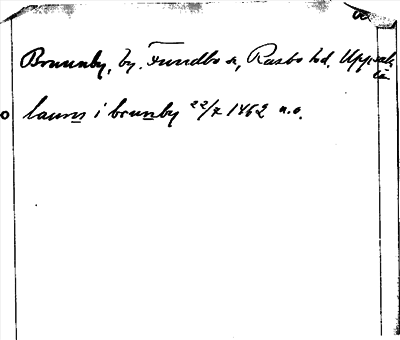 Brunnby, by. Fundbo sn, Rasbo hd. Uppsala
län
laurns i brunby 22/7 1462 n.o.